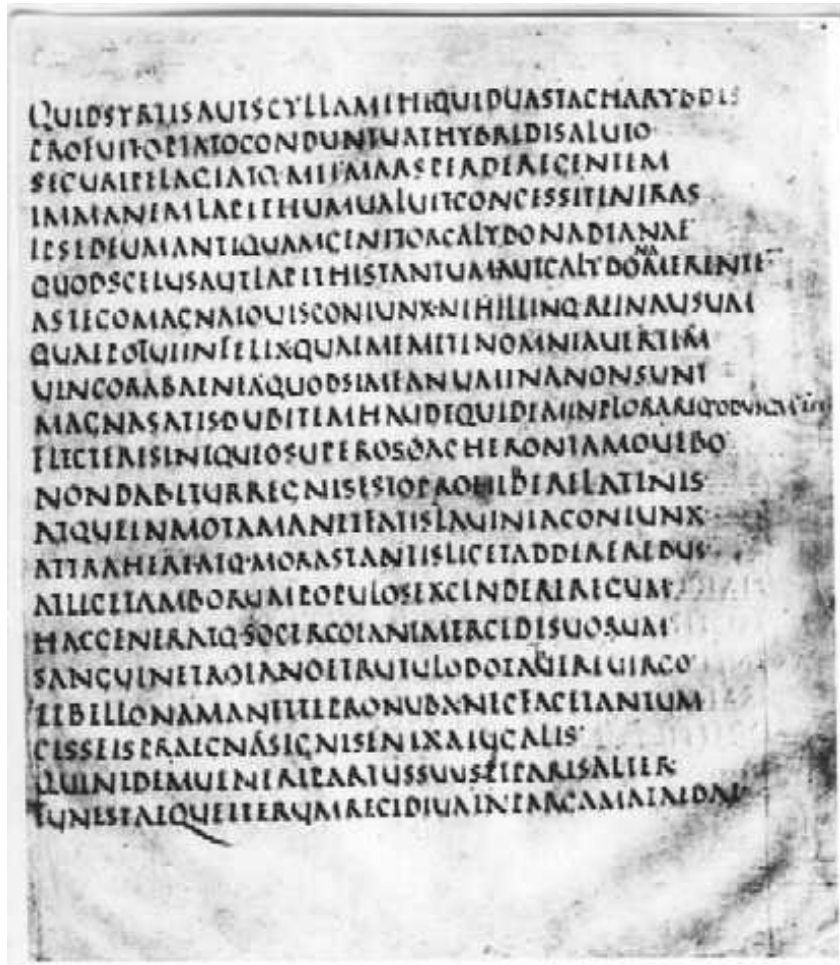 QUIDSYRTISAUTSCYLLAMIHIQUIDUASTACHARYBDIS
PROFUITOPTATOCONDUNTUATHYBRIDISALUIO
SECURIPELAGIATQ·MEIMARSPERDEREGENTEM
IMMANEMLAPITHUMUALUITCONCESSITINIRAS
IPSEDEUMANTIQUAMGENITORCALYDONADIANAE
QUODSCELUSAUTLAPITHISTANTUMAUTCALYDONAMERENTE
ASTEGOMAGNAIOUISCONIUNX·NIHILLINQREINAUSUM
QUAEPOTUIINFELIXQUAEMEMETINOMNIAUERTIM
UINCORABAENEAQUODSIMEANUMINANONSUNT
MAGNASATISDUBITEMHAUDEQUIDEMINPLORAREQODUSQUAMEST
FLECTERESINEQUEOSUPEROSACHERONTAMOUEBO
NONDABITURREGNISESTOPROHIBERELATINIS
ATQUEINMOTAMANETFATISLAUINIACONIUNX
ATTRAHEREATQ·MORASTANTISLICETADDEREREBUS
ATLICETAMBORUMPOPULOSEXCINDEREREGUM
HACGENERATQ·SOCERCOIANTMERCEDISUORUM
SANGUINETROIANOETRUTULODOTABEREUIRGO
ETBELLONAMANETTEPRONUBANECFACETANTUM
CISSEISPRAEGNASIGNISENIXAIUGALIS
QUINIDEMUENERIPARTUSSUUSETPARISALTER
FUNESTAEQUEITERUMRECIDIUAINPARGAMATAEDAE